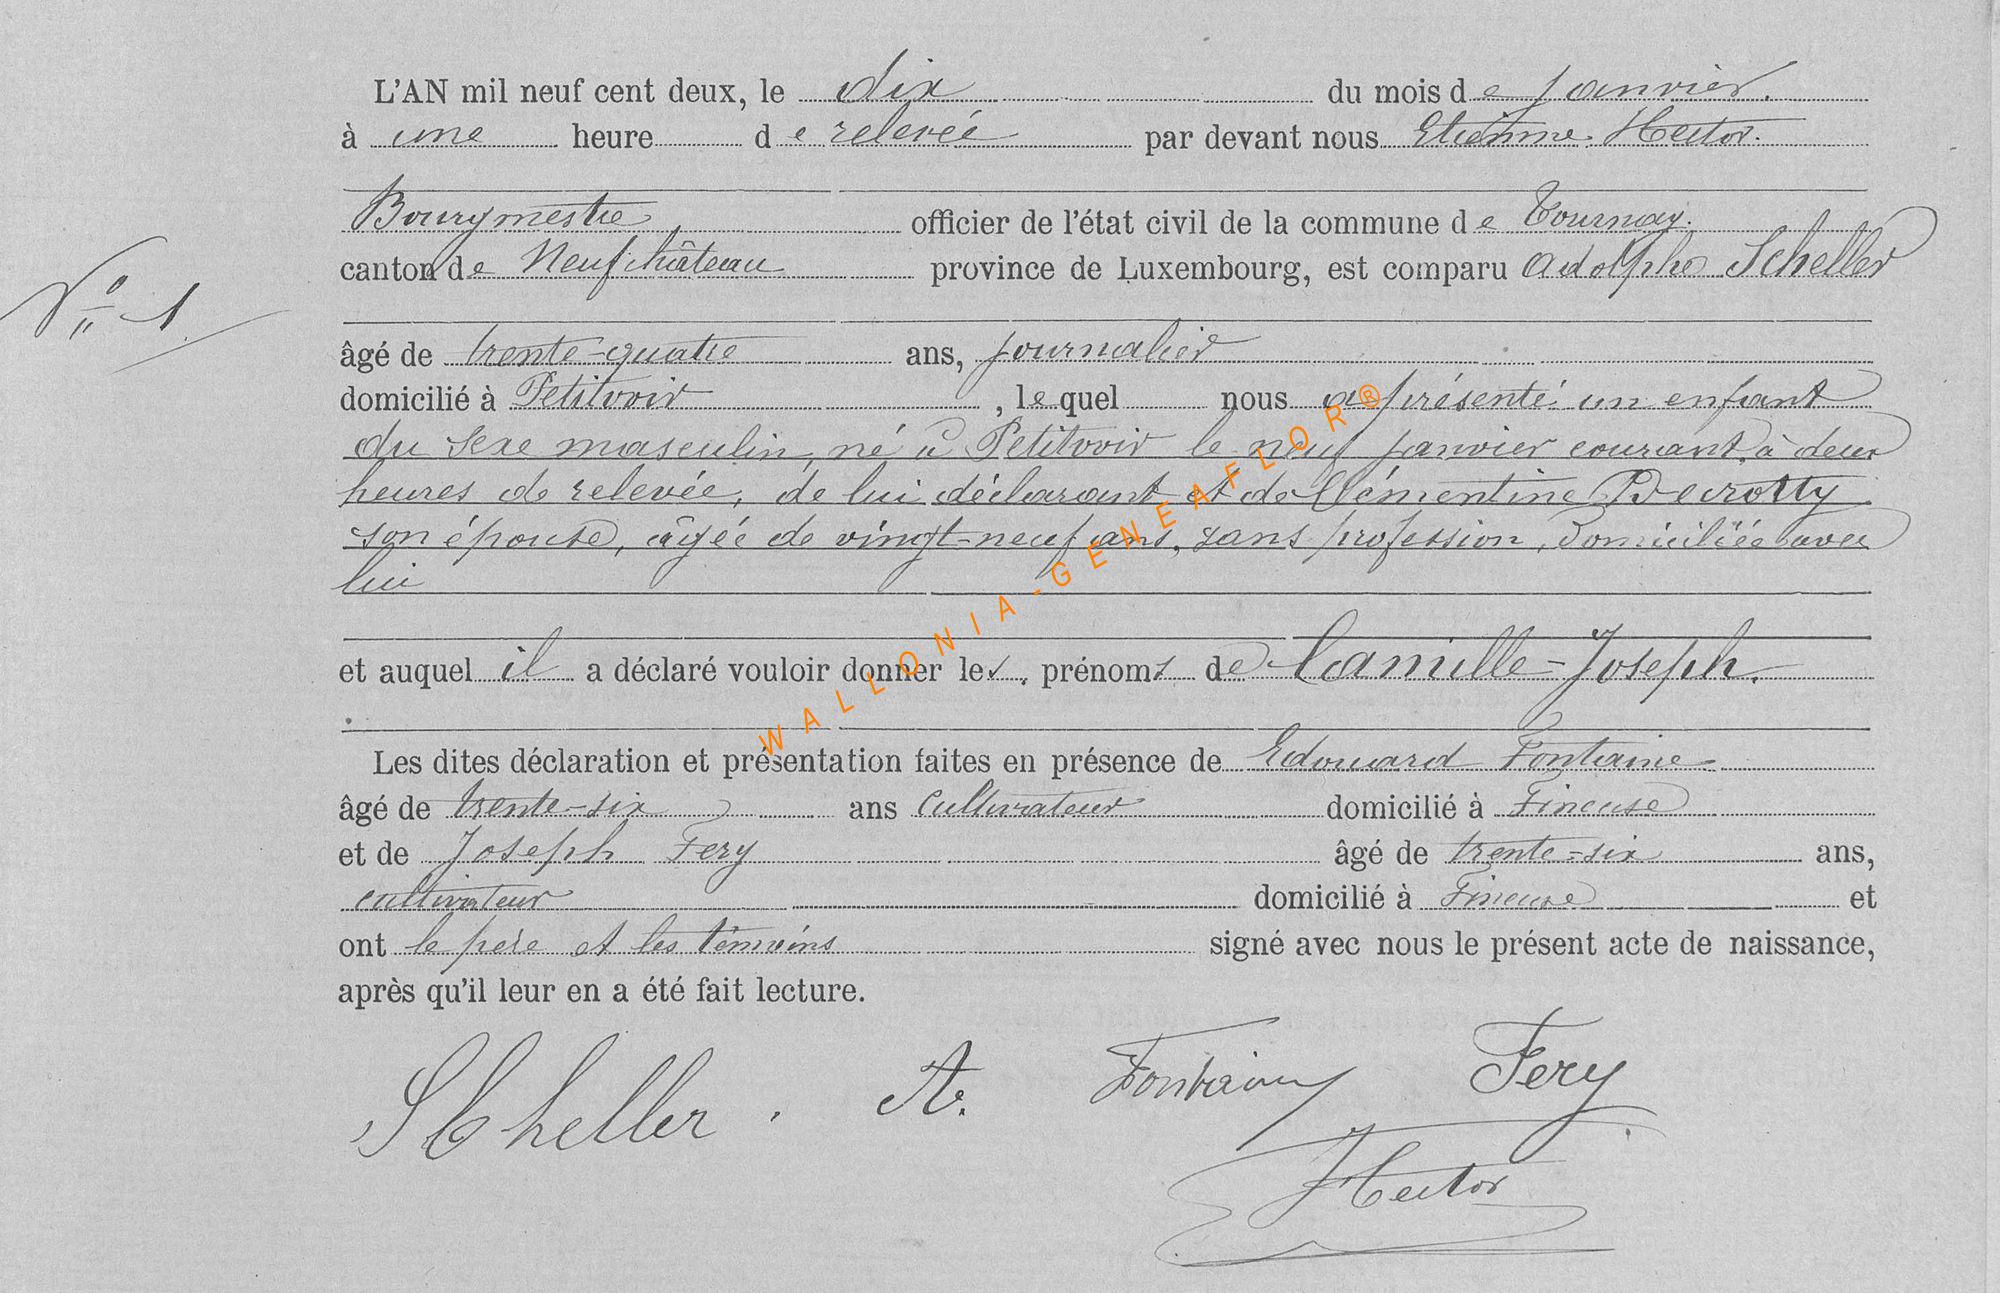 L'AN mil neuf cent deux, le dix du mois de janvier.
à une heure de relevée par devant nous Etienne Hector.
Bourgmestre officier de l'état civil de la commune de Tournay.
canton de Neufchâteau province de Luxembourg, est comparu Adolphe Scheller
N° 1
âgé de trente-quatre ans, journalier
domicilié à Petitvoir, lequel nous a présenté un enfant
du sexe masculin, né à Petitvoir le neuf janvier courant, à deux
heures de relevée, de lui déclarant et de Clémentine Decrotty
son épouse, âgée de vingt-neuf ans, sans profession, domiciliée avec
lui
et auquel il a déclaré vouloir donner les prénoms de Camille-Joseph.
Les dites déclaration et présentation faites en présence de Edouard Fontaine
âgé de trente-six ans cultivateur domicilié à Fineuse
et de Joseph Fery âgé de trente-six ans,
cultivateur domicilié à Fineuse et
ont le père et les témoins signé avec nous le présent acte de naissance,
après qu'il leur en a été fait lecture.
Scheller. A. Fontaine Fery
Hector
WALLONIA-GENEAFLOR®